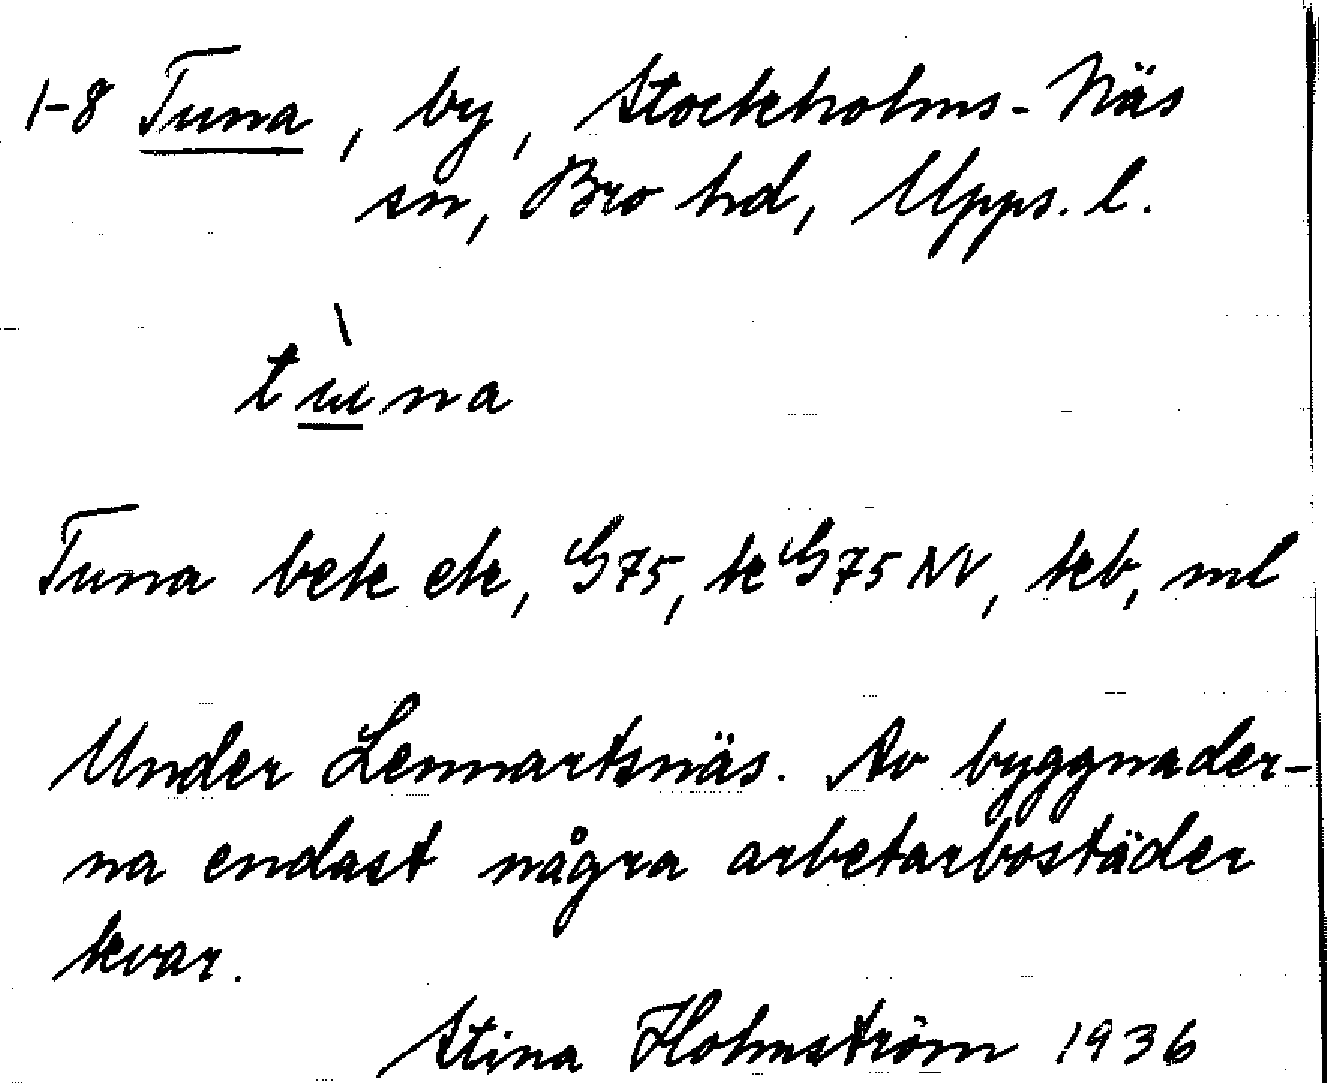 1-8 Tuna, by, Stockholms-Näs
sn, Bro hd, Upps. l.
tù̲na
Tuna bek ek, G75, k G75 NV, kb, ml
Under Lennartsnäs. Av byggnader-
na endast några arbetarbostäder
kvar.
Stina Holmström 1936